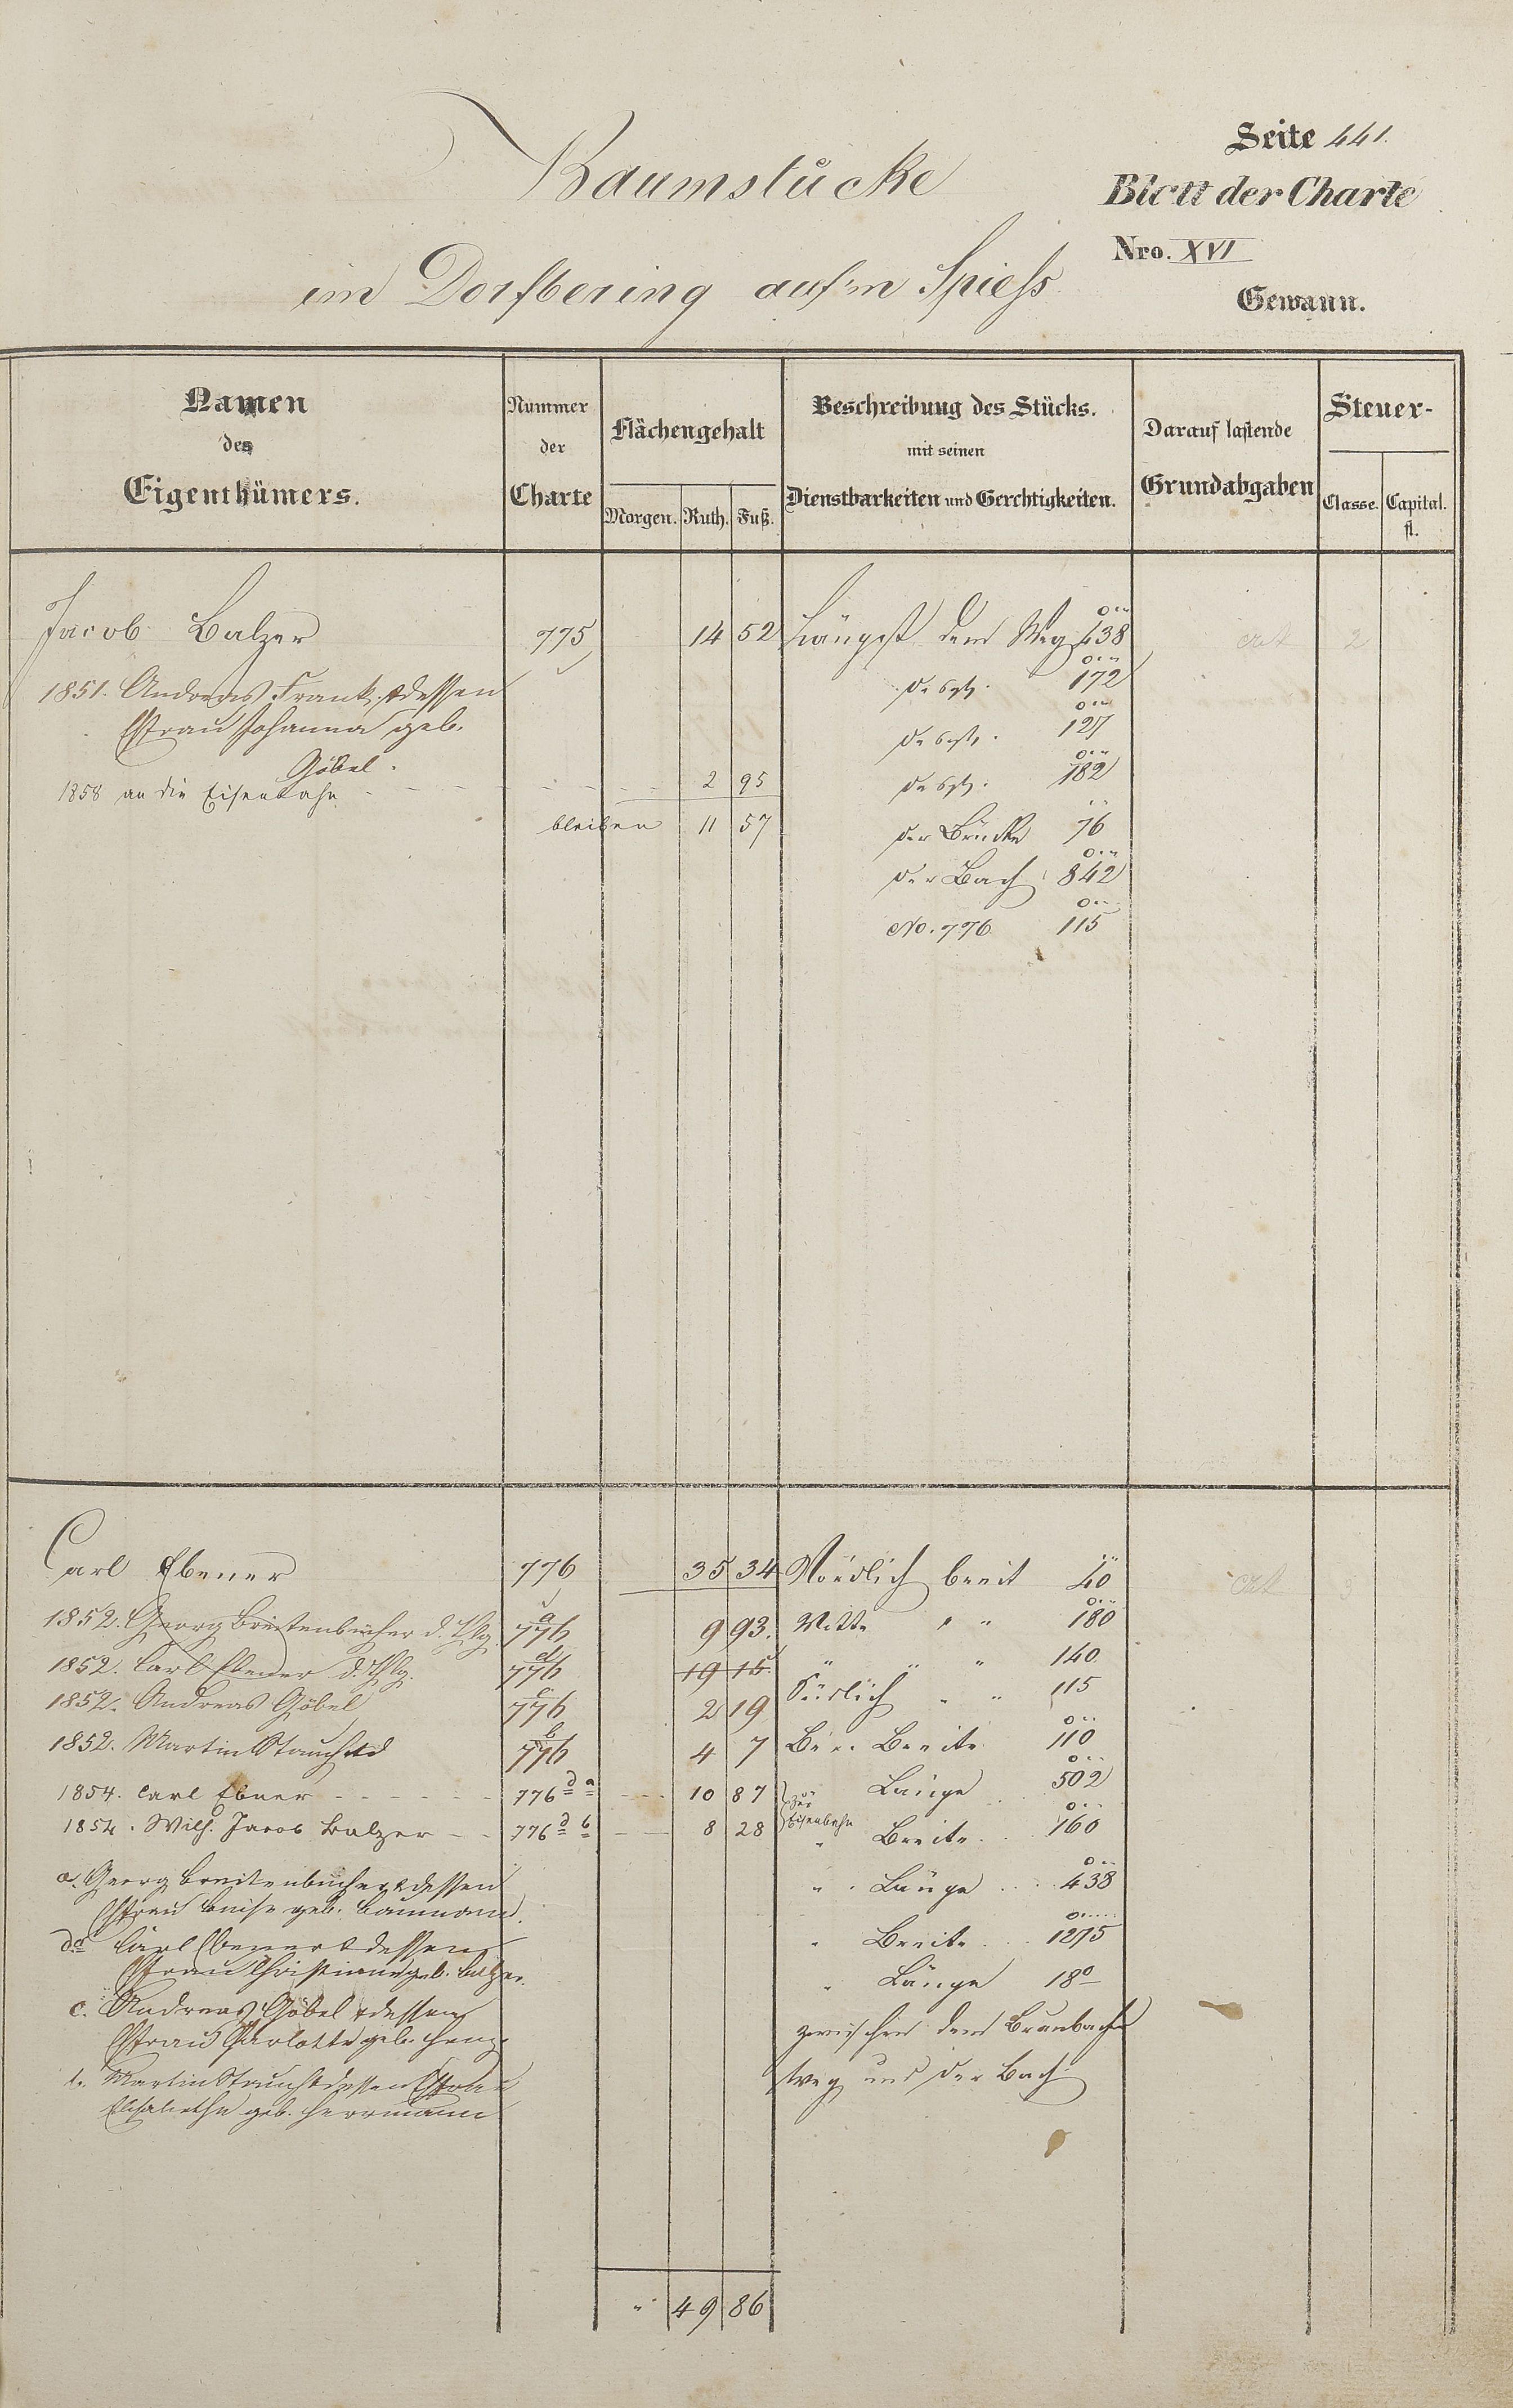 Seite 441.
Baumstücke
Blatt der Charte
im Dorfbering auf'm Spiess
Nro. XVI
Gewann.
Namen des Eigenthümers.
Nummer der Charte
Flächengehalt
Morgen. Ruth. Fuß.
Beschreibung des Stücks. mit seinen Dienstbarkeiten und Gerchtigkeiten.
Darauf lastende Grundabgaben
Steuer-
Classe. Capital. fl.
Jacob Balzer 775 14 52 Längst dem Weg 438 2
1851. Andreas Frank & dessen 172
Efrau Johanna geb. 127
Göbel.
1858 an die Eisenbahn 2 95 182
bleiben 11 57 der Brücke 76
der Bach 842
No. 776. 115
Carl Ebener 776 35 34 Nördlich breit 40
1852. Georg Breitenbücher d. 776 a 9 93. Mitte " " 180
1852. Carl Ebener d. 776 d 19 15 " " " 140
1852. Andreas Göbel 776 c 2 19 Südlich " " 115
1852. Martin Stauch 776 b 4 7 Breite 110
1854. Carl Ebner 776 d a 10 87 zur Eisenbahn Länge 502
1854. Wilh. Jacob Balzer 776 d b 8 28 " Breite 160
a. Georg Breitenbücher & dessen " Länge 438
Efrau Luise geb. Baumann.
Carl Ebener & dessen " Breite 1275
Efrau Christiane geb. Balzer. " Länge 18
c. Andreas Göbel & dessen
Efrau Charlotte geb. zwischen dem Braubach
Martin Stauch & dessen Efrau Weg und der Bach
Elisabetha geb. Herrmann
" 49 86